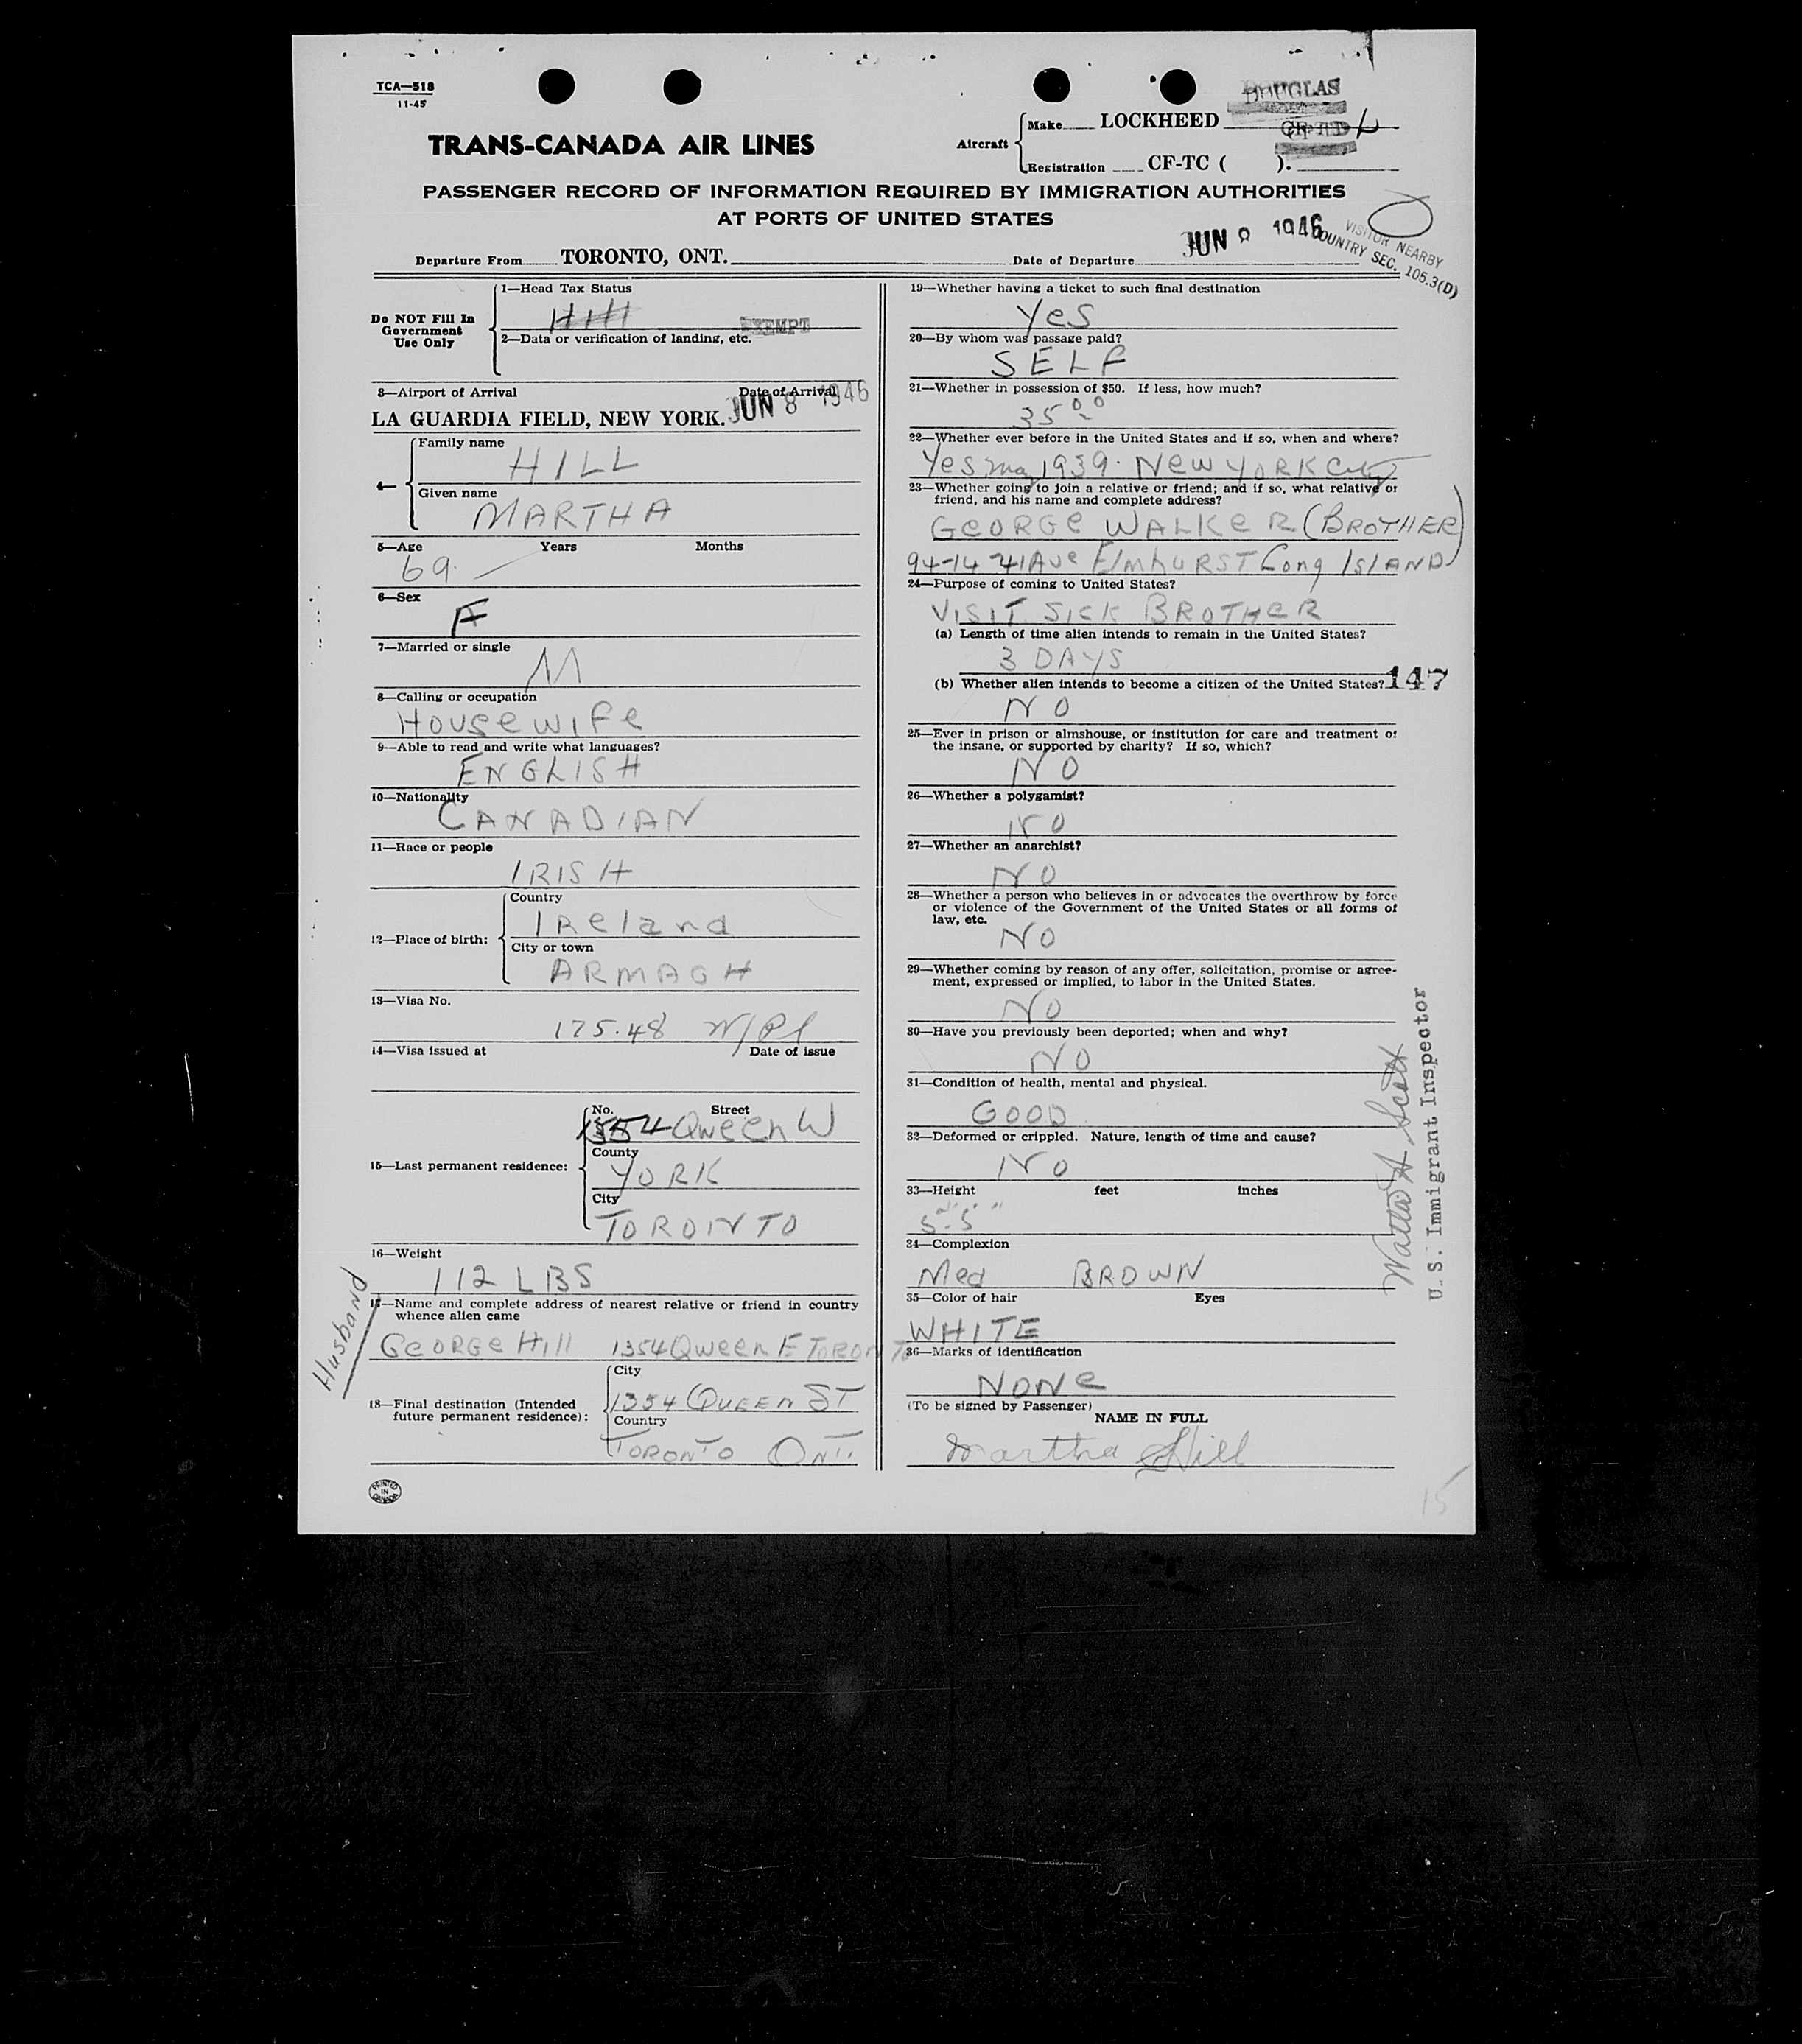 TCA—518
11-45
DOUGLAS
TRANS-CANADA AIR LINES
Aircraft
Make LOCKHEED
Registration CF-TC ( ).
PASSENGER RECORD OF INFORMATION REQUIRED BY IMMIGRATION AUTHORITIES
AT PORTS OF UNITED STATES
Departure From TORONTO, ONT. Date of Departure JUN 8 1946
VISITOR NEARBY
COUNTRY SEC. 105.3(D)
Do NOT Fill In
Government
Use Only
1—Head Tax Status
EXEMPT
2—Data or verification of landing, etc.
3—Airport of Arrival Date of Arrival
LA GUARDIA FIELD, NEW YORK. JUN 8 1946
4— Family name
HILL
Given name
MARTHA
5—Age Years Months
69
6—Sex
F
7—Married or single
M
8—Calling or occupation
Housewife
9—Able to read and write what languages?
ENGLISH
10—Nationality
CANADIAN
11—Race or people
IRISH
12—Place of birth:
Country
Ireland
City or town
ARMAGH
13—Visa No.
175.48
14—Visa issued at Date of issue
15—Last permanent residence:
No. Street
1354 Qween W
County
YORK
City
TORONTO
16—Weight
112 LBS
Husband
17—Name and complete address of nearest relative or friend in country
whence alien came
George Hill 1354 Qween E TORONTO
18—Final destination (Intended
future permanent residence):
City
1354 QUEEN ST
Country
TORONTO ONT.
PRINTED
IN
CANADA
19—Whether having a ticket to such final destination
Yes
20—By whom was passage paid?
SELF
21—Whether in possession of $50. If less, how much?
35.00
22—Whether ever before in the United States and if so, when and where?
Yes 1939. New YORK City
23—Whether going to join a relative or friend; and if so, what relative or
friend, and his name and complete address?
GEORGE WALKER (BROTHER)
94-14 41 Ave ElmhURST Long ISLAND
24—Purpose of coming to United States?
VISIT SICK BROTHER
(a) Length of time alien intends to remain in the United States?
3 DAYS
(b) Whether alien intends to become a citizen of the United States? 147
NO
25—Ever in prison or almshouse, or institution for care and treatment of
the insane, or supported by charity? If so, which?
NO
26—Whether a polygamist?
NO
27—Whether an anarchist?
NO
28—Whether a person who believes in or advocates the overthrow by force
or violence of the Government of the United States or all forms of
law, etc.
NO
29—Whether coming by reason of any offer, solicitation, promise or agree-
ment, expressed or implied, to labor in the United States.
NO
30—Have you previously been deported; when and why?
NO
31—Condition of health, mental and physical.
GOOD
32—Deformed or crippled. Nature, length of time and cause?
NO
33—Height feet inches
5'-5"
34—Complexion
Med BROWN
35—Color of hair Eyes
WHITE
36—Marks of identification
NONE
(To be signed by Passenger)
NAME IN FULL
Martha Hill
Scott
U. S. Immigrant Inspector
15